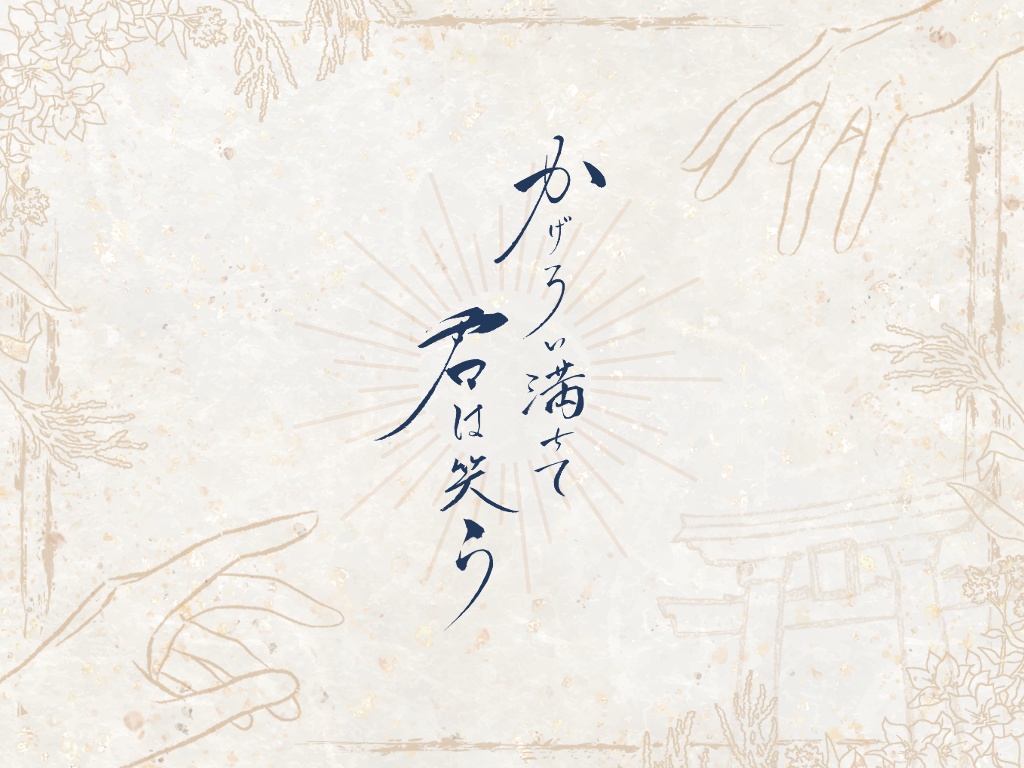 かげろい満ちて
君は笑う